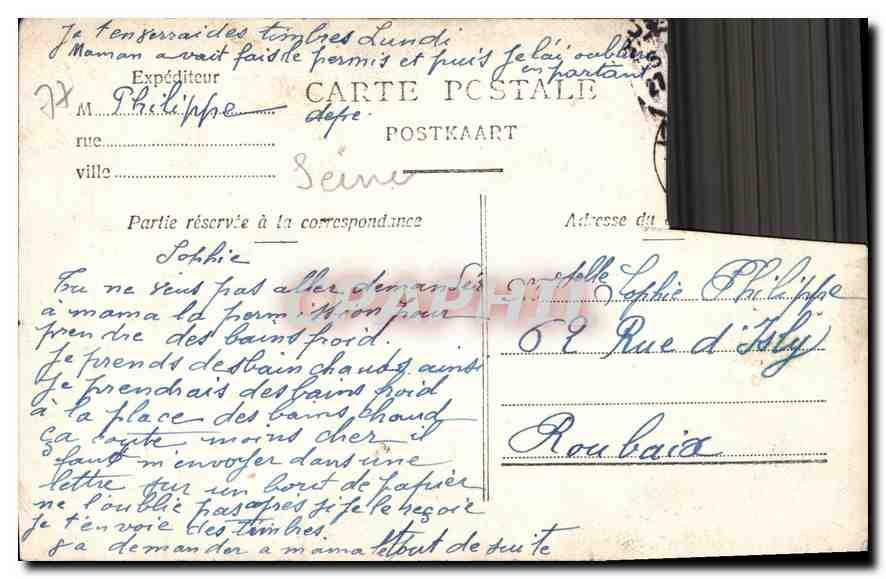 Je t'enverrai des timbres Lundi
Maman avait fais le permis et puis je l'ai oublier
en partant
Expéditeur
77
M Philippe
CARTE POSTALE
POSTKAART
rue
ville
Seine
Partie réservée à la correspondance
Adresse du
Sophie
Tu ne veus pas aller demander
à mama la permission pour
prendre des bains froid.
Je prends des bain chauds ainsi
Je prendrais des bains froid
à la place des bains chaud
ça coute moins cher il
faut m'envoyer dans une
lettre sur un bout de papier
ne l'oublie pas après si je le reçoie
Je t'envoie des timbres
va demander a mama tout de suite
Sophie Philippe
62 Rue d'Isly
Roubaix